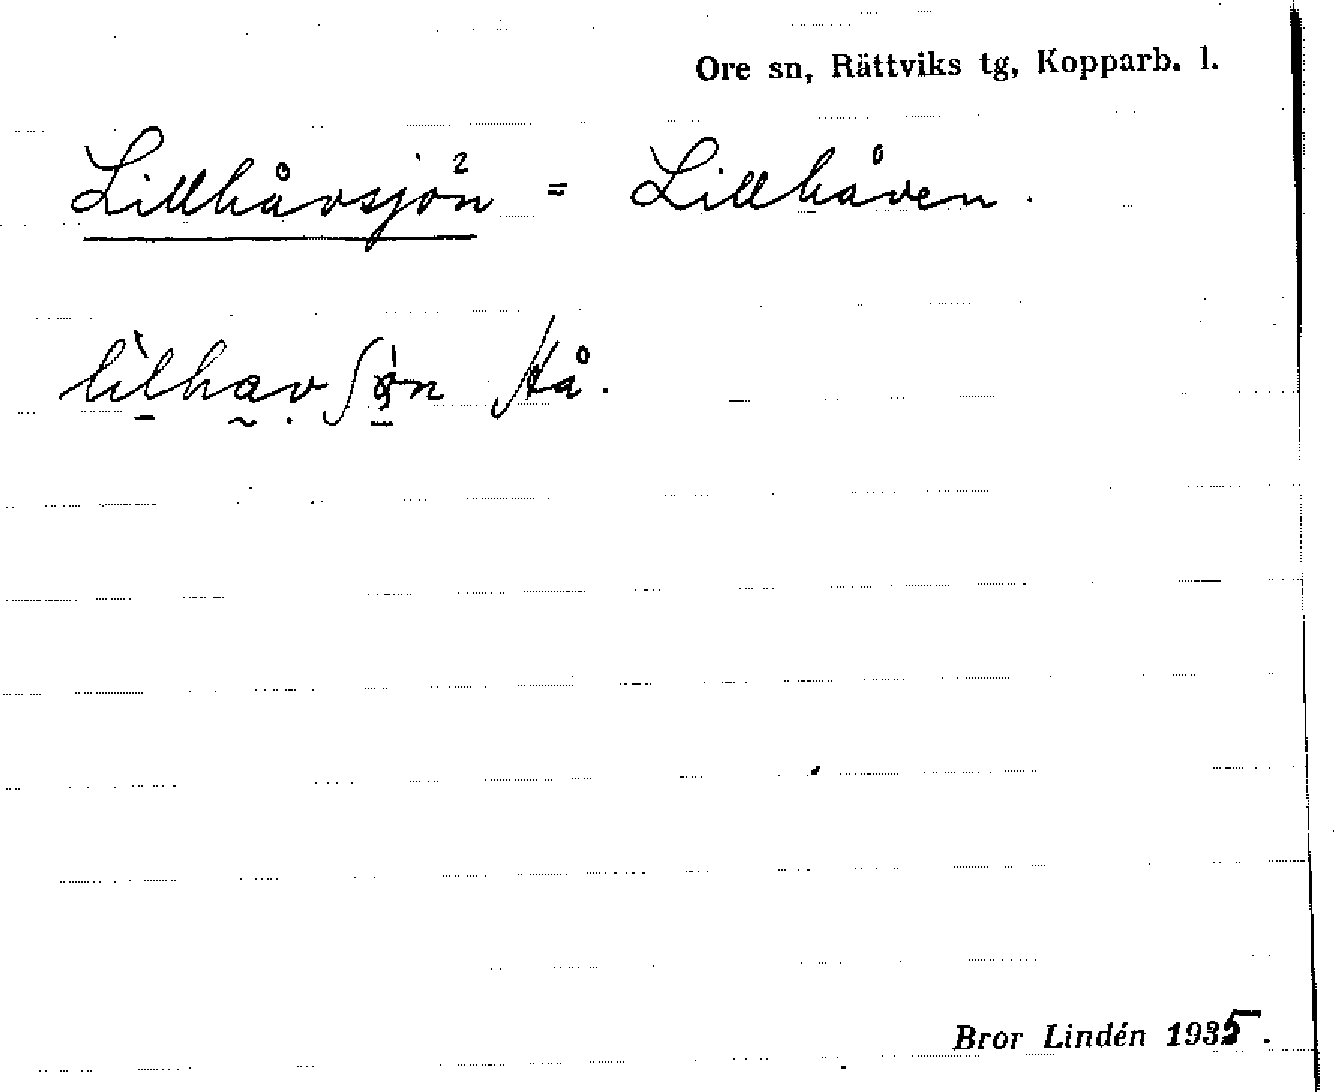 Ore sn, Rättviks tg, Kopparb. l.
Lillhåvsjön = Lillhåven.
Bror Lindén 1935.